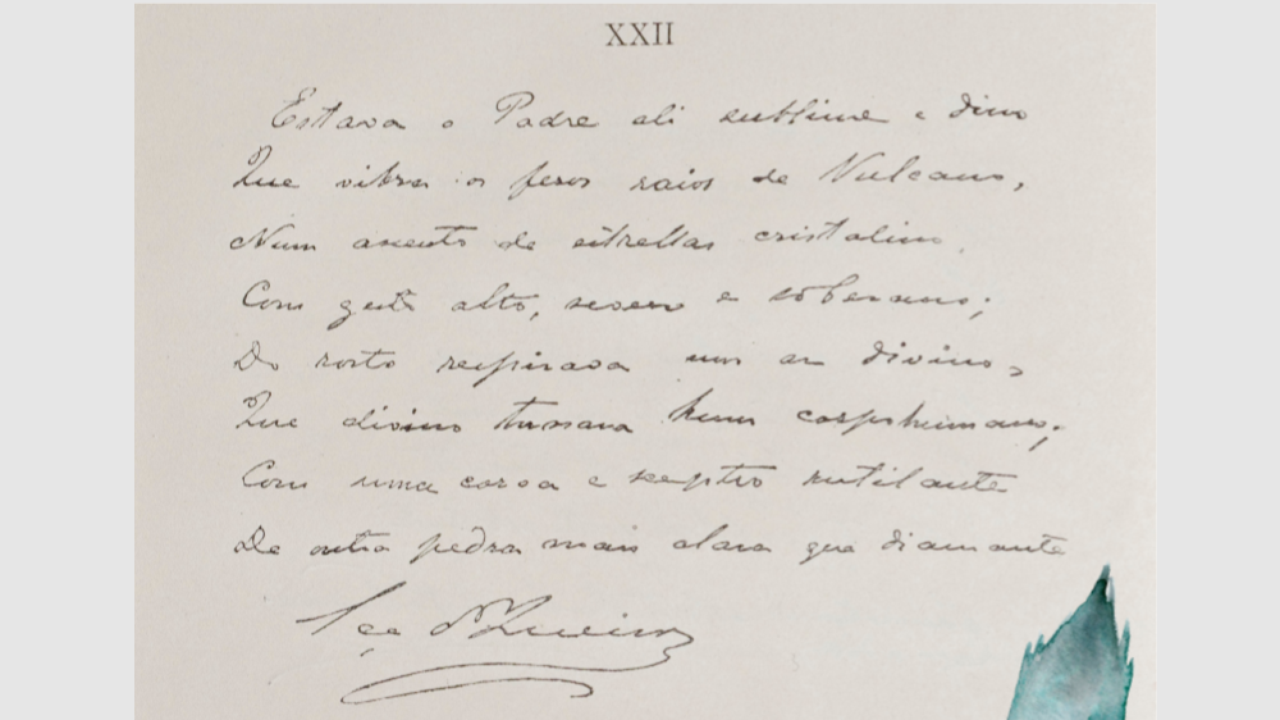 XXII
Estava o Padre ali sublime e dino
Que vibra os feros raios de Vulcano,
Num assento de estrellas cristalino,
Com gesto alto, severo e soberano;
Do rosto respirava um ar divino,
Que divino tornara hum corpo humano;
Com uma coroa e sceptro rutilante
De outra pedra mais clara que diamante
Eça d'Queiroz